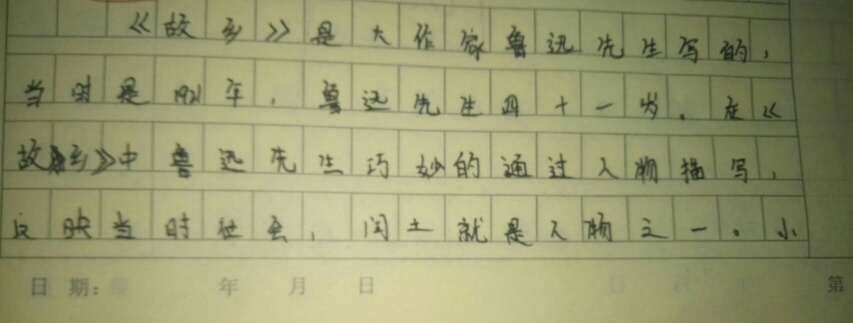 《故乡》是大作家鲁迅先生写的，
当时是1921年，鲁迅先生四十一岁。在《
故乡》中鲁迅先生巧妙的通过人物描写，
反映当时社会，闰土就是人物之一。小
日期： 年 月 日 第